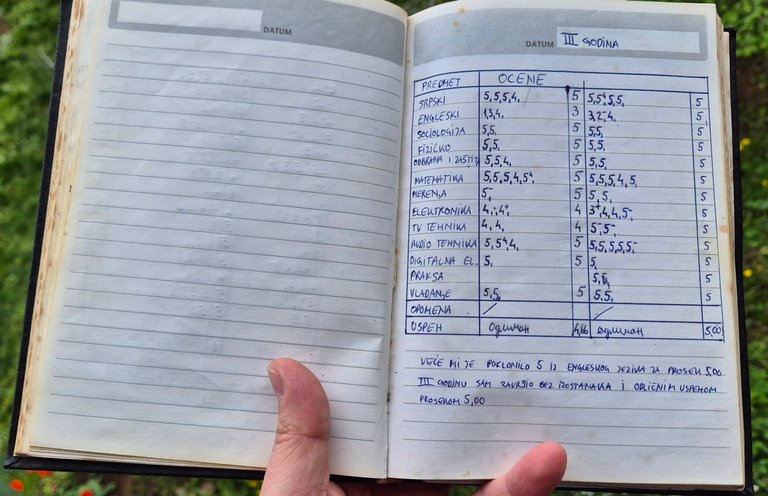 DATUM
DATUM III GODINA
PREDMET OCENE
SRPSKI 5,5,5,4, 5 5,5⁺,5,5, 5
ENGLESKI 1,3,4, 3 3,2,4, 5
SOCIOLOGIJA 5,5, 5 5,5, 5
FIZIČKO 5,5, 5 5,5, 5
ODBRANA I ZAŠTITA 5,5,4, 5 5,5, 5
MATEMATIKA 5,5,5,4,5⁺ 5 5,5,5,4,5, 5
MERENJA 5⁻, 5 5,5, 5
ELEKTRONIKA 4, 4⁺, 4 3⁺,4,4,5⁻, 5
TV TEHNIKA 4,4, 4 5⁻,5⁻, 5
AUDIO TEHNIKA 5,5⁺,4, 5 5,5,5,5,5⁻, 5
DIGITALNA EL. 5, 5 5, 5
PRAKSA 5,5, 5
VLADANJE 5,5, 5 5,5, 5
OPOMENA / /
USPEH Одличан 4,66 Одличан 5,00
VEĆE MI JE POKLONILO 5 IZ ENGLESKOG JEZIKA ZA PROSEK 5,00
III GODINU SAM ZAVRŠIO BEZ IZOSTANAKA I ODLIČNIM USPEHOM
PROSEKOM 5,00